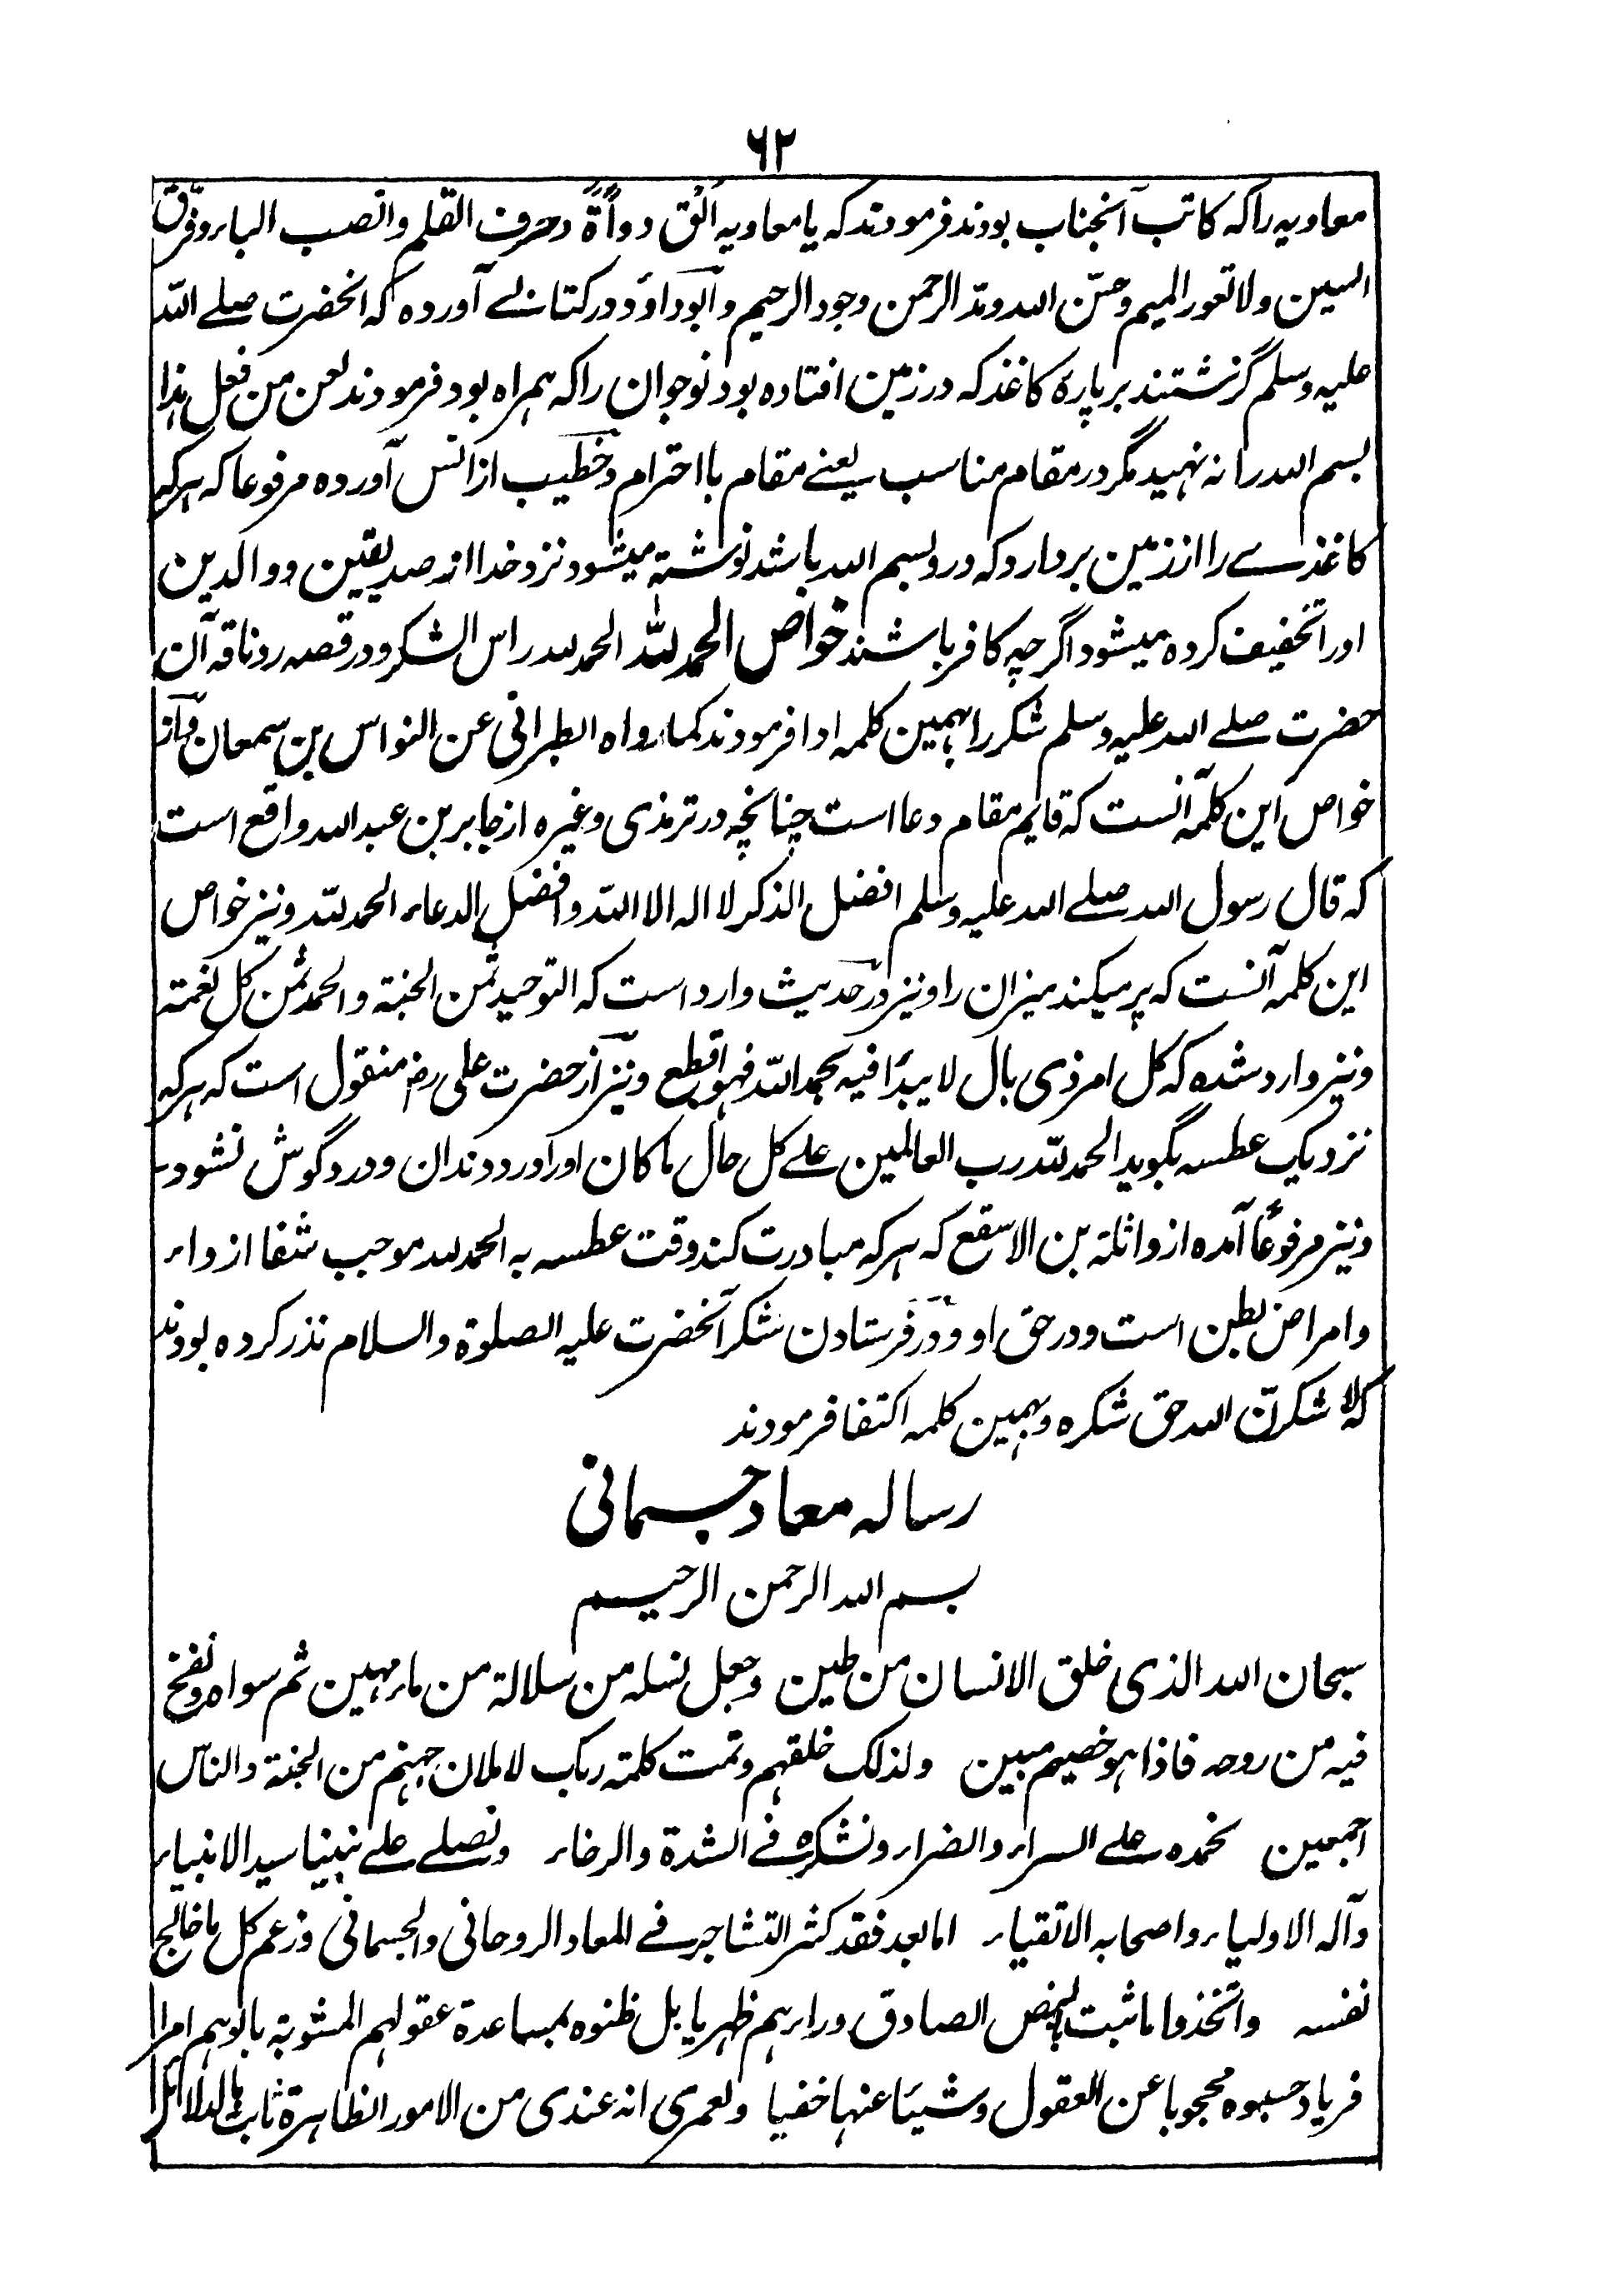 ۶۲
معاویه را که کاتب آنجناب بودند فرمودند که یا معاویه الق دواة وحرف القلم وانصب الباء وفرق
السین ولا تعور المیم وحسّن الله ومد الرحمن وجود الرحیم وابوداؤد در کتاب آورده که انحضرت صلے الله
علیه وسلم گزشتند بر پارۀ کاغذ که در زمین افتاده بود نوجوان را که همراه بود فرمودند لعن من فعل هذا
بسم الله را نه نهید مگر در مقام مناسب یعنے مقام با احترام وخطیب از انس آورده مرفوعا که هر که
کاغذے را از زمین بردارد که درو بسم الله باشد نوشته میشود نزد خدا از صدیقین ووالدین
او را تخفیف کرده میشود اگر چه کافر باشند خواص الحمد لله الحمد لله راس الشکر ودر قصه رد ناقه آن
حضرت صلے الله علیه وسلم شکر را بهمین کلمه ادا فرمودند کما رواه الطبرانی عن النواس بن سمعان واز
خواص این کلمه آنست که قایم مقام دعا است چنانچه در ترمذی وغیره از جابر بن عبد الله واقع است
که قال رسول الله صلے الله علیه وسلم افضل الذکر لا اله الا الله وافضل الدعاء الحمد لله ونیز خواص
این کلمه آنست که پر میکند میزان را ونیز در حدیث وارد است که التوحید ثمن الجنة والحمد ثمن کل نعمة
ونیز وارد شده که کل امر ذی بال لا یبدأ فیه بحمد الله فهو اقطع ونیز از حضرت علی رض منقول است که هر که
نزدیک عطسه بگوید الحمد لله رب العالمین علے کل حال ما کان او را درد دندان ودرد گوش نشود
ونیز مرفوعاً آمده از واثلة بن الاسقع که هر که مبادرت کند وقت عطسه به الحمد لله موجب شفا از داء
وامراض بطن است ودر حق او ودر فرستادن شکر آنحضرت علیه الصلوة والسلام نذر کرده بودند
که لا شکرنّ الله حق شکره وبهمین کلمه اکتفا فرمودند
رساله معاد جسمانی
بسم الله الرحمن الرحیم
سبحان الله الذی خلق الانسان من طین وجعل نسله من سلالة من ماء مهین ثم سواه ونفخ
فیه من روحه فاذا هو خصیم مبین ولذلک خلقهم وتمت کلمة ربک لاملان جهنم من الجنة والناس
اجمعین نحمده علے السراء والضراء ونشکره فے الشدة والرخاء ونصلے علے نبینا سید الانبیاء
وآله الاولیاء واصحابه الاتقیاء اما بعد فقد کثر التشاجر فے المعاد الروحانی والجسمانی وزعم کل ما خالج
نفسه واتخذوا ما ثبت بنص الصادق وراءهم ظهریا بل ظنوه بمساعدة عقولهم المشوبة بالوهم امرا
فریا وحسبوه محجوبا عن العقول وشیئا عنها خفیا ولعمری انه عندی من الامور الظاهرة ثابت بالدلائل